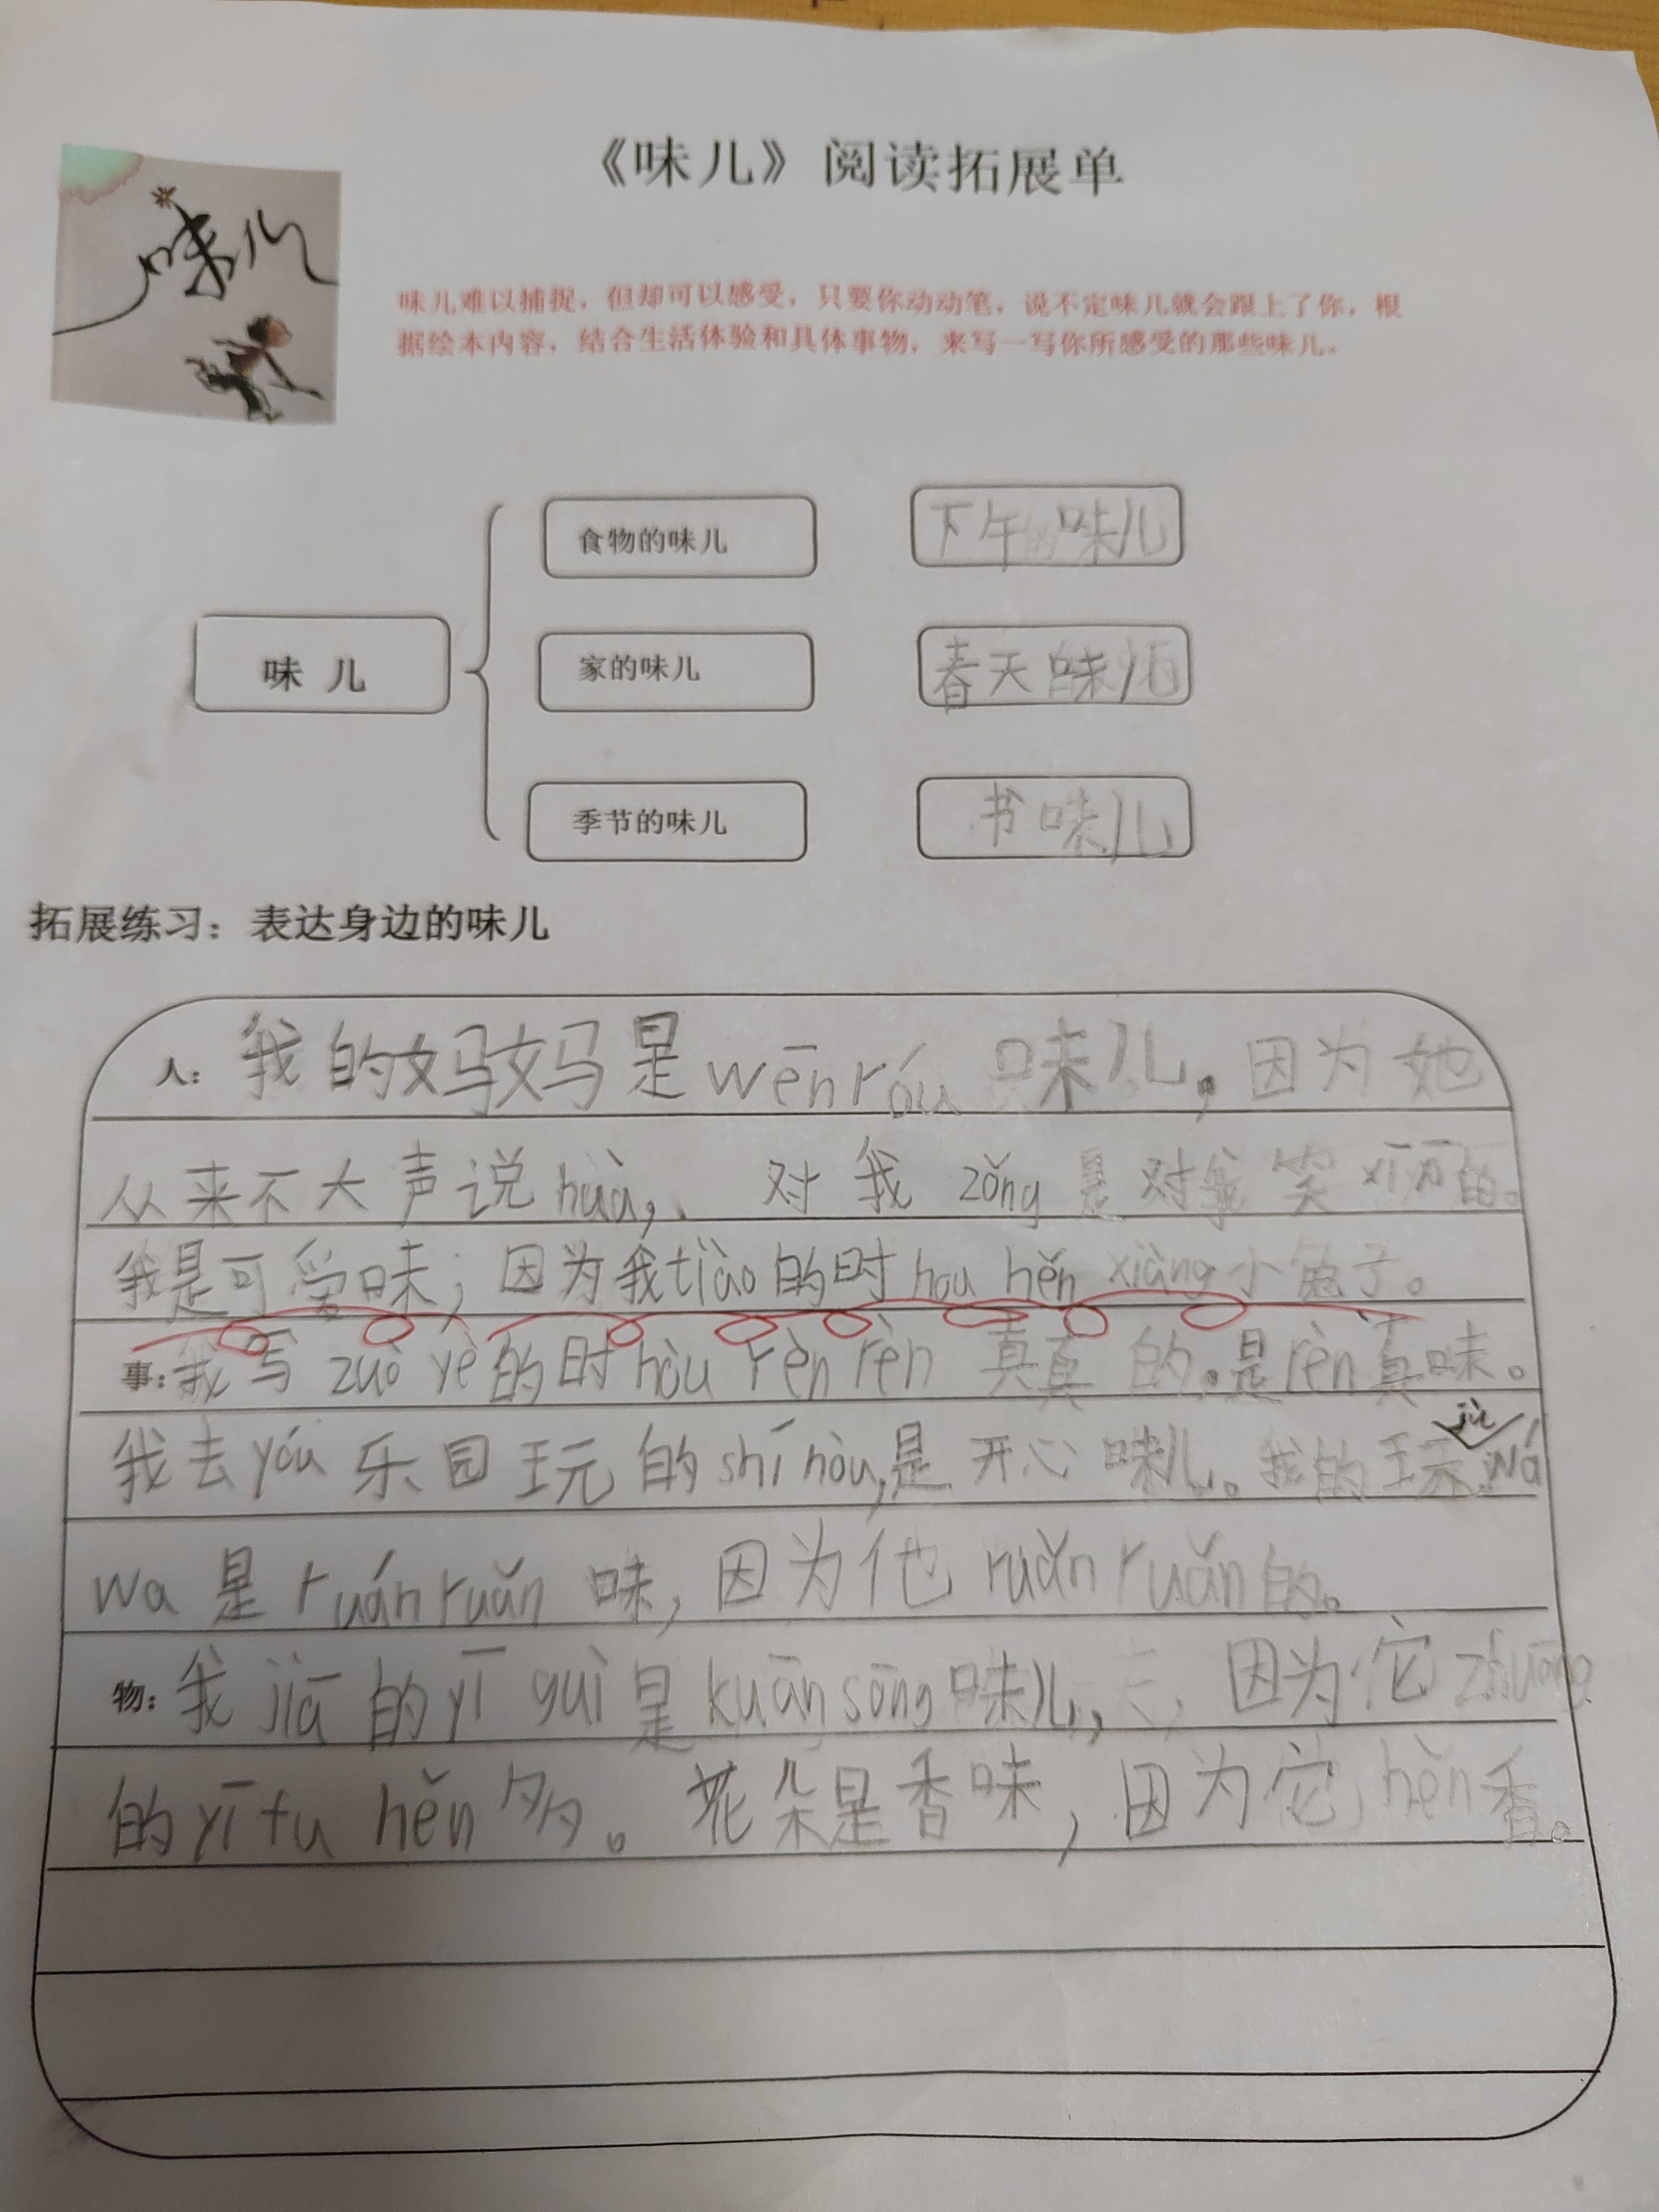 《味儿》阅读拓展单
味儿
味儿难以捕捉，但却可以感受，只要你动动笔，说不定味儿就会跟上了你，根
据绘本内容，结合生活体验和具体事物，来写一写你所感受的那些味儿。
食物的味儿 下午的味儿
味 儿
家的味儿 春天味儿
季节的味儿 书味儿
拓展练习：表达身边的味儿
人：我的妈妈是wēnróu味儿，因为她
从来不大声说huà，对我zǒng是对我笑xīxī的。
我是可爱味；因为我tiào的时hou hěn xiàng小兔子。
事：我写zuò yè的时hòu rèn rèn真真的。是rèn真味。
我去yóu乐园玩的shí hòu，是开心味儿。我的玩jù wá
wa是ruánruǎn味，因为他ruǎnruǎn的。
物：我jiā的yī guì是kuānsōng味儿，因为它zhuāng
的yī fu hěn多。花朵是香味，因为它hěn香。